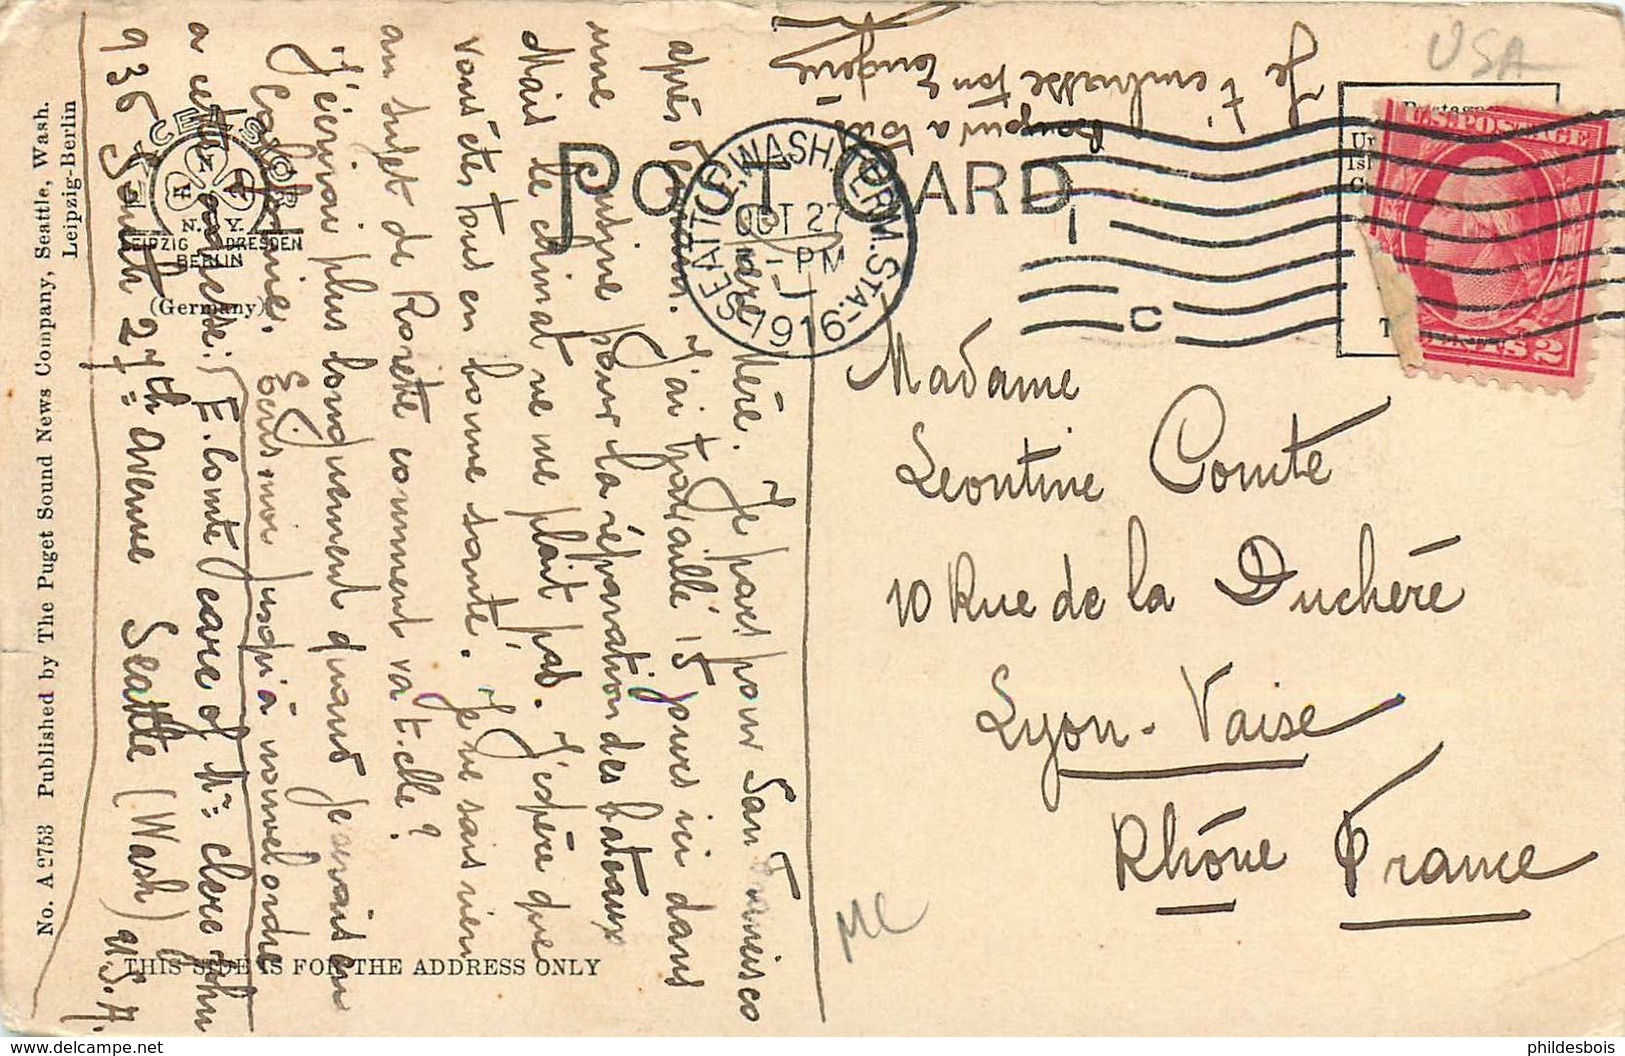 USA
Postage
POST CARD
SEATTLE, WASH. TERM. STA.
OCT 27
-PM
1916
1
C
U.S. POSTAGE
CENTS 2
EXCELSIOR
A N A
N. Y.
LEIPZIG DRESDEN
BERLIN
(Germany)
No. A 2753 Published by The Puget Sound News Company, Seattle, Wash.
Leipzig-Berlin
THIS SIDE IS FOR THE ADDRESS ONLY
Chère Mère. Je pars pour San Francisco
après demain. J'ai travaillé 15 jours ici dans
une usine pour la réparation des bateaux
Mais le climat ne me plait pas. J'espère que
vous êtes tous en bonne santé. Je ne sais rien
au sujet de Rosette comment va t-elle?
J'écrirai plus longuement quand je serais en
Californie. Ecris-moi jusqu'à nouvel ordre
a cette adresse: E. Comte care of Mr: John
936 South 27th Avenue Seattle (Wash) U.S.A.
Bonjour a tous
Je t'embrasse ton
Eugène
Madame
Leontine Comte
10 Rue de la Duchère
Lyon-Vaise
Rhône France
MC
https://www.delcampe.net
phildesbois